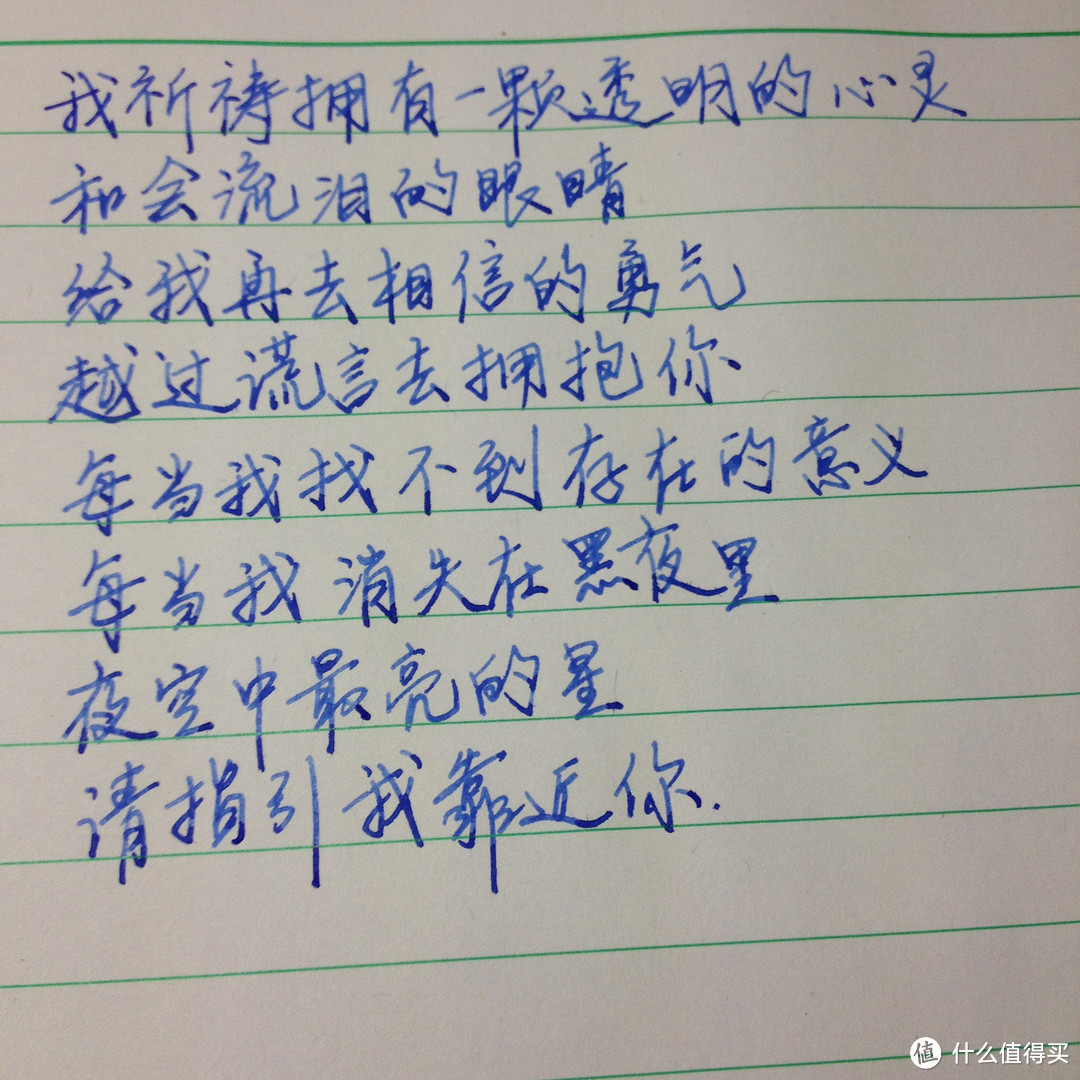 我祈祷拥有一颗透明的心灵
和会流泪的眼睛
给我再去相信的勇气
越过谎言去拥抱你
每当我找不到存在的意义
每当我消失在黑夜里
夜空中最亮的星
请指引我靠近你.
值 什么值得买